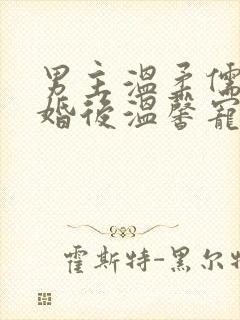 男主溫柔儒
婚後溫馨寵
霍斯特-黑尔特